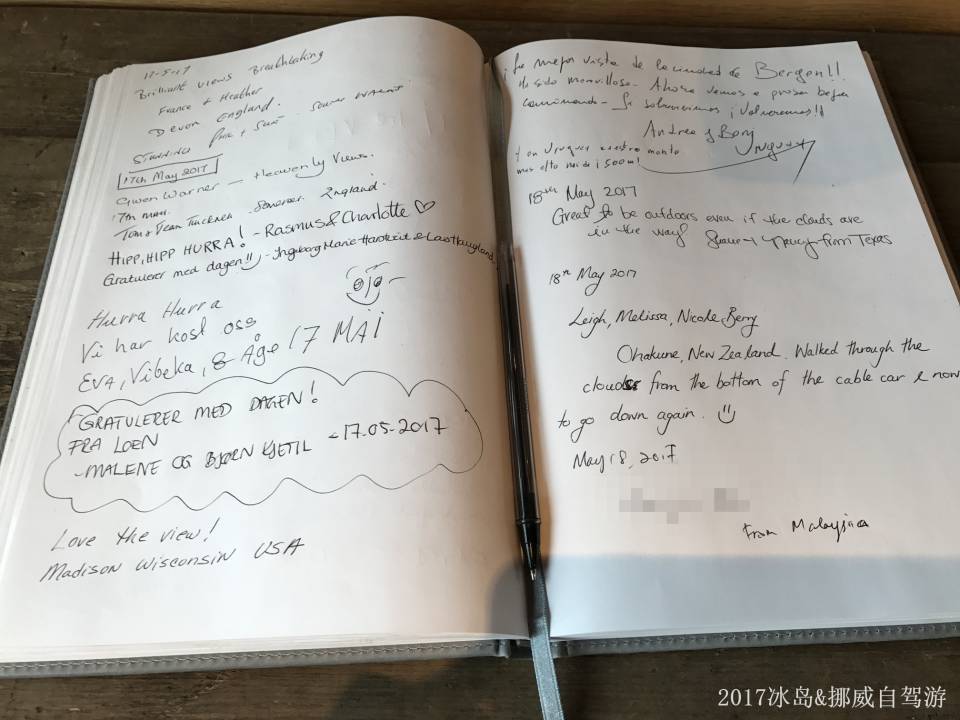 17-5-17
Brilliant views Breathtaking
France & Heather
Devon England.
Stunning
17th May 2017
Gwen Warner — Heavenly Views.
England.
HIPP, HIPP HURRA! - Rasmus & Charlotte ♡
Gratulerer med dagen!! - Ingeborg Marie
Hurra Hurra
Vi har kost oss
EVA, Vibeka, & Åge 17 MAI
GRATULERER MED DAGEN!
FRA LOEN
- MALENE OG BJØRN KJETIL - 17.05-2017
Love the view!
Madison Wisconsin USA
mejor vista de la ciudad de Bergen!!
Ha sido maravilloso. Ahora vamos a probar bajar
caminando - Si sobrevivimos ¡Volveremos!!
Andrea y
Uruguay
Y en Uruguay nuestro monte
mas alto mide ¡500m!
18th May 2017
Great to be outdoors even if the clouds are
in the way! Nancy from Texas
18th May 2017
Leigh, Melissa, Nicole Berry
Ohakune, New Zealand. Walked through the
clouds from the bottom of the cable car & now
to go down again. ☺
May 18, 2017
From Malaysia
2017冰岛&挪威自驾游